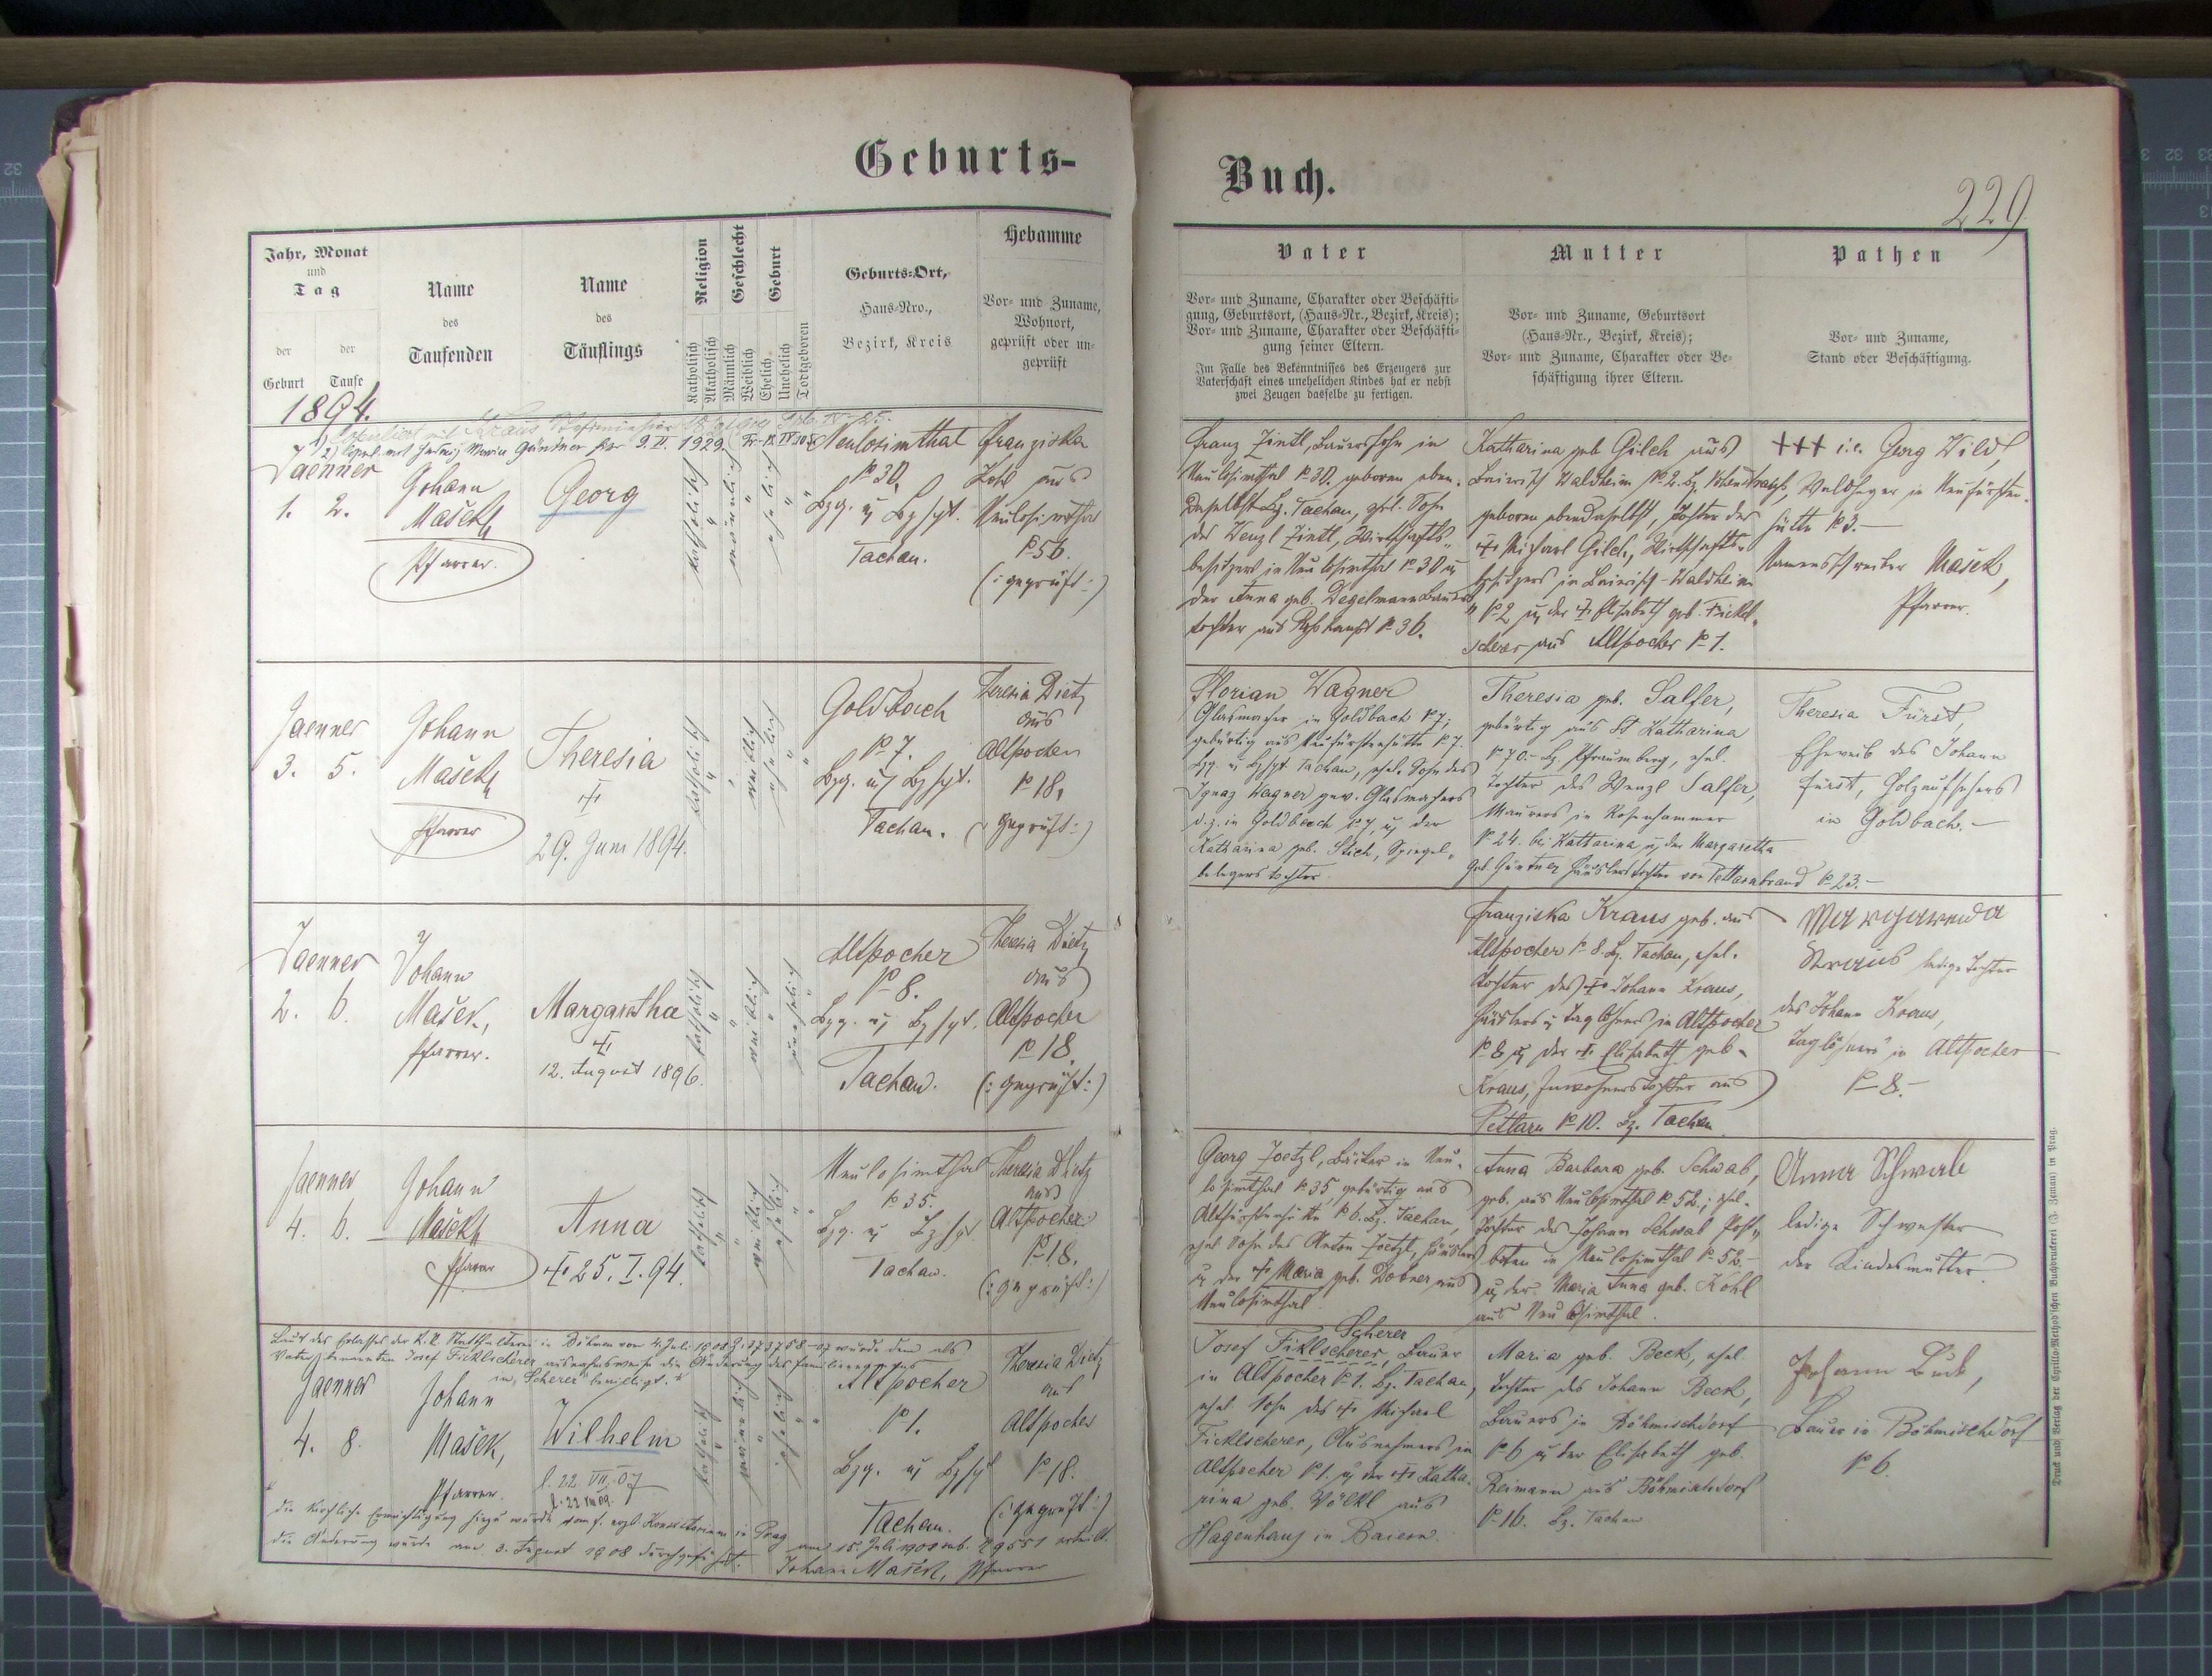 Geburts-
Buch.
229
Jahr, Monat
und
Tag
der
der
Geburt
Taufe
Name
des
Taufenden
Name
des
Täuflings
Religion
Katholisch
Akatholisch
Geschlecht
Männlich
Weiblich
Geburt
Ehelich
Unehelich
Todtgeboren
Geburts-Ort,
Haus-Nro.,
Bezirk, Kreis
Hebamme
Vor- und Zuname,
Wohnort,
geprüft oder un-
geprüft
Vater
Vor- und Zuname, Charakter oder Beschäfti-
gung, Geburtsort, (Haus-Nr., Bezirk, Kreis);
Vor- und Zuname, Charakter oder Beschäfti-
gung seiner Eltern.
Im Falle des Bekenntnisses des Erzeugers zur
Vaterschaft eines unehelichen Kindes hat er nebst
zwei Zeugen dasselbe zu fertigen.
Mutter
Vor- und Zuname, Geburtsort
(Haus-Nr., Bezirk, Kreis);
Vor- und Zuname, Charakter oder Be-
schäftigung ihrer Eltern.
Pathen
Vor- und Zuname,
Stand oder Beschäftigung.
1894.
Maria Gärtner 9. II. 1929.
Jaenner
1. 2.
Johann
Mašek
Pfarrer.
Georg
katholisch
männlich
ehelich
Neulosimthal
№ 30,
Bzg. u Bzhpt.
Tachau.
Franziska
Kohl aus
Neulosimthal
№ 56.
(: geprüft :)
Franz Zintl, Bauerssohn in
Neulosimthal № 30. geboren eben-
daselbst Bz. Tachau, ehl. Sohn
des Wenzl Zintl, Wirthschafts-
besitzers in Neulosimthal № 30 u
der Anna geb. Degelmann Bauers-
tochter aus № 36.
Katharina geb Gilch aus
Bairisch Waldheim № 2. Bz. Vohenstrauß,
geboren ebendaselbst, Tochter des
+ Michael Gilch, Wirthschafts-
besitzers in Bairisch-Waldheim
№ 2 u der + Elisabeth geb. Fickl-
scherer aus Altpocher № 1.
+++ i.e. Georg Wild,
Waldheger in Neufürsten-
hütte № 3.-
Namensschreiber Mašek,
Pfarrer.
Jaenner
3. 5.
Johann
Mašek
Pfarrer
Theresia
+
29. Juni 1894.
katholisch
weiblich
ehelich
Goldbach
№ 7.
Bzg. u Bzhpt.
Tachau.
Theresia Dietz
aus
Altpocher
№ 18,
(: geprüft :)
Florian Wagner
Glasmacher in Goldbach № 7;
gebürtig aus Neufürstenhütte № 7.
Bzg. u Bzhpt. Tachau, ehel. Sohn des
Ignaz Wagner gew. Glasmachers
d.z. in Goldbach № 7 u der
Katharina geb. Stich, Spiegel-
belegerstochter.
Theresia geb. Salfer,
gebürtig aus St Katharina
№ 70.- Bz. Pfraumberg, ehel.
Tochter des Wenzl Salfer,
Maurers in Rosenhammer
№ 24. bei Kattarina u der Margaretha
geb. Gürtner Häuslerstochter von Petlarnbrand № 23.-
Theresia Fürst,
Eheweib des Johann
Fürst, Holzaufsehers
in Goldbach.-
Jaenner
2. 6.
Johann
Mašek,
Pfarrer.
Margaretha
+
12. August 1896.
katholisch
weiblich
unehelich
Altpocher
№ 8.
Bzg. u Bzhpt.
Tachau.
Theresia Dietz
aus
Altpocher
№ 18.
(: geprüft :)
Franziska Kraus geb. aus
Altpocher № 8. Bz. Tachau, ehel.
Tochter des + Johann Kraus,
Häuslers u Taglöhners in Altpocher
№ 8 u der + Elisabeth geb.
Kraus, Inwohnerstochter aus
Petlarn № 10. Bz. Tachau
Margareda
Kraus ledige Tochter
des Johann Kraus,
Taglöhners in Altpocher
№ 8.-
Jaenner
4. 6.
Johann
Mašek
Pfarrer
Anna
+ 25. I. 94.
katholisch
weiblich
ehelich
Neulosimthal
№ 35.
Bzg. u Bzhpt.
Tachau.
Theresia Dietz
aus
Altpocher
№ 18.
(: geprüft :)
Georg Joetzl, Bäcker in Neu-
losimthal № 35 gebürtig aus
Altfürstenhütte № 6. Bz. Tachau,
ehel Sohn des Anton Joetzl, Häuslers
u der + Maria geb. Dobner aus
Neulosimthal
Anna Barbara geb. Schwab,
geb. aus Neulosimthal № 52., ehel.
Tochter des Johann Schwab Post-
boten in Neulosimthal № 52.-
u der Maria Anna geb. Kohl
aus Neulosimthal.
Anna Schwab
ledige Schwester
der Kindesmutter.
Laut des Erlasses der k.k. Statthalterei in Böhmen vom 4. Juli 1908 Z. 137358-07 wurde dem als
Vater benannten Josef Ficklscherer ausnahmsweise die Änderung des Familiennamens
in „Scherer" bewilligt.*
Jaenner
4. 8.
Johann
Mašek,
Pfarrer.
Wilhelm
l. 22. VII. 07
katholisch
männlich
ehelich
Altpocher
№ 1.
Bzg. u Bzhpt
Tachau.
Theresia Dietz
aus
Altpocher
№ 18.
(: geprüft :)
Scherer
Josef Fiklscherer, Bauer
in Altpocher № 1. Bz. Tachau,
ehel Sohn des + Michael
Ficklscherer, Ausnehmers in
Altpocher № 1. u der + Katha-
rina geb. Völkl aus
Hagenhaus in Baiern.
Maria geb. Beck, ehel.
Tochter des Johann Beck,
Bauers in Böhmischdorf
№ 6 u der Elisabeth geb.
Reimann aus Böhmischdorf
№ 16. Bz. Tachau
Johann Beck,
Bauer in Böhmischdorf
№ 6.
* Die kirchliche Ermächtigung hiezu wurde vom f. erzb. Konsistorium in Prag am 15. Juli 1908 erteilt.
Die Änderung wurde am 3. August 1908 durchgeführt. Johann Mašek, Pfarrer
Druck und Verlag der Cyrillo-Method'schen Buchdruckerei (J. Zeman) in Prag.